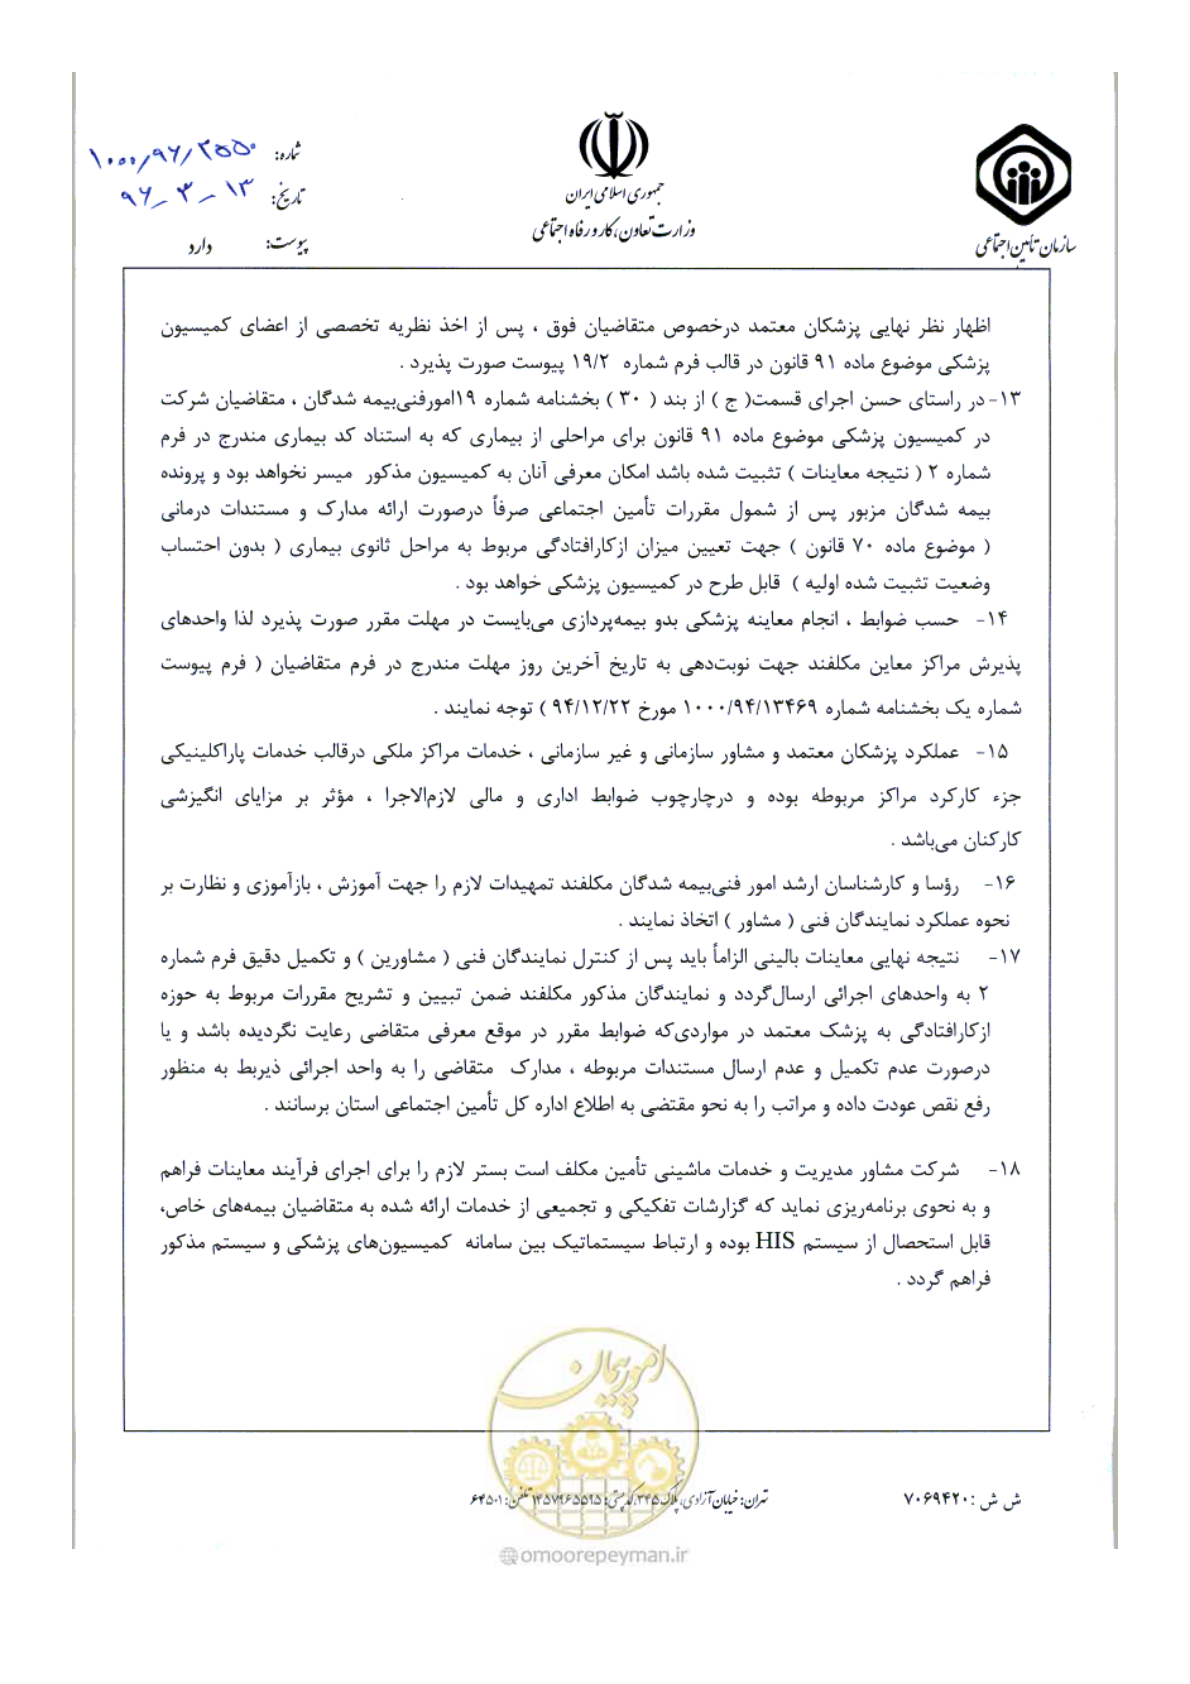 جمهوری اسلامی ایران
وزارت تعاون، کار و رفاه اجتماعی
سازمان تأمین اجتماعی
شماره: ۱۰۰۰/۹۶/۳۵۵۰
تاریخ: ۹۶-۳-۱۳
پیوست: دارد
اظهار نظر نهایی پزشکان معتمد درخصوص متقاضیان فوق ، پس از اخذ نظریه تخصصی از اعضای کمیسیون
پزشکی موضوع ماده ۹۱ قانون در قالب فرم شماره ۱۹/۲ پیوست صورت پذیرد .
۱۳- در راستای حسن اجرای قسمت( ج ) از بند ( ۳۰ ) بخشنامه شماره ۱۹امورفنی‌بیمه شدگان ، متقاضیان شرکت
در کمیسیون پزشکی موضوع ماده ۹۱ قانون برای مراحلی از بیماری که به استناد کد بیماری مندرج در فرم
شماره ۲ ( نتیجه معاینات ) تثبیت شده باشد امکان معرفی آنان به کمیسیون مذکور میسر نخواهد بود و پرونده
بیمه شدگان مزبور پس از شمول مقررات تأمین اجتماعی صرفاً درصورت ارائه مدارک و مستندات درمانی
( موضوع ماده ۷۰ قانون ) جهت تعیین میزان ازکارافتادگی مربوط به مراحل ثانوی بیماری ( بدون احتساب
وضعیت تثبیت شده اولیه ) قابل طرح در کمیسیون پزشکی خواهد بود .
۱۴- حسب ضوابط ، انجام معاینه پزشکی بدو بیمه‌پردازی می‌بایست در مهلت مقرر صورت پذیرد لذا واحدهای
پذیرش مراکز معاین مکلفند جهت نوبت‌دهی به تاریخ آخرین روز مهلت مندرج در فرم متقاضیان ( فرم پیوست
شماره یک بخشنامه شماره ۱۰۰۰/۹۴/۱۳۴۶۹ مورخ ۹۴/۱۲/۲۲ ) توجه نمایند .
۱۵- عملکرد پزشکان معتمد و مشاور سازمانی و غیر سازمانی ، خدمات مراکز ملکی درقالب خدمات پاراکلینیکی
جزء کارکرد مراکز مربوطه بوده و درچارچوب ضوابط اداری و مالی لازم‌الاجرا ، مؤثر بر مزایای انگیزشی
کارکنان می‌باشد .
۱۶- رؤسا و کارشناسان ارشد امور فنی‌بیمه شدگان مکلفند تمهیدات لازم را جهت آموزش ، بازآموزی و نظارت بر
نحوه عملکرد نمایندگان فنی ( مشاور ) اتخاذ نمایند .
۱۷- نتیجه نهایی معاینات بالینی الزاماً باید پس از کنترل نمایندگان فنی ( مشاورین ) و تکمیل دقیق فرم شماره
۲ به واحدهای اجرائی ارسال‌گردد و نمایندگان مذکور مکلفند ضمن تبیین و تشریح مقررات مربوط به حوزه
ازکارافتادگی به پزشک معتمد در مواردی‌که ضوابط مقرر در موقع معرفی متقاضی رعایت نگردیده باشد و یا
درصورت عدم تکمیل و عدم ارسال مستندات مربوطه ، مدارک متقاضی را به واحد اجرائی ذیربط به منظور
رفع نقص عودت داده و مراتب را به نحو مقتضی به اطلاع اداره کل تأمین اجتماعی استان برسانند .
۱۸- شرکت مشاور مدیریت و خدمات ماشینی تأمین مکلف است بستر لازم را برای اجرای فرآیند معاینات فراهم
و به نحوی برنامه‌ریزی نماید که گزارشات تفکیکی و تجمیعی از خدمات ارائه شده به متقاضیان بیمه‌های خاص،
قابل استحصال از سیستم HIS بوده و ارتباط سیستماتیک بین سامانه کمیسیون‌های پزشکی و سیستم مذکور
فراهم گردد .
امور پیمان
ش ش : ۷۰۶۹۴۲۰
تهران: خیابان آزادی، پلاک ۳۴۵، کدپستی: ۱۴۵۷۹۶۵۵۹۵ تلفن: ۶۴۵۰۱
@omoorepeyman.ir